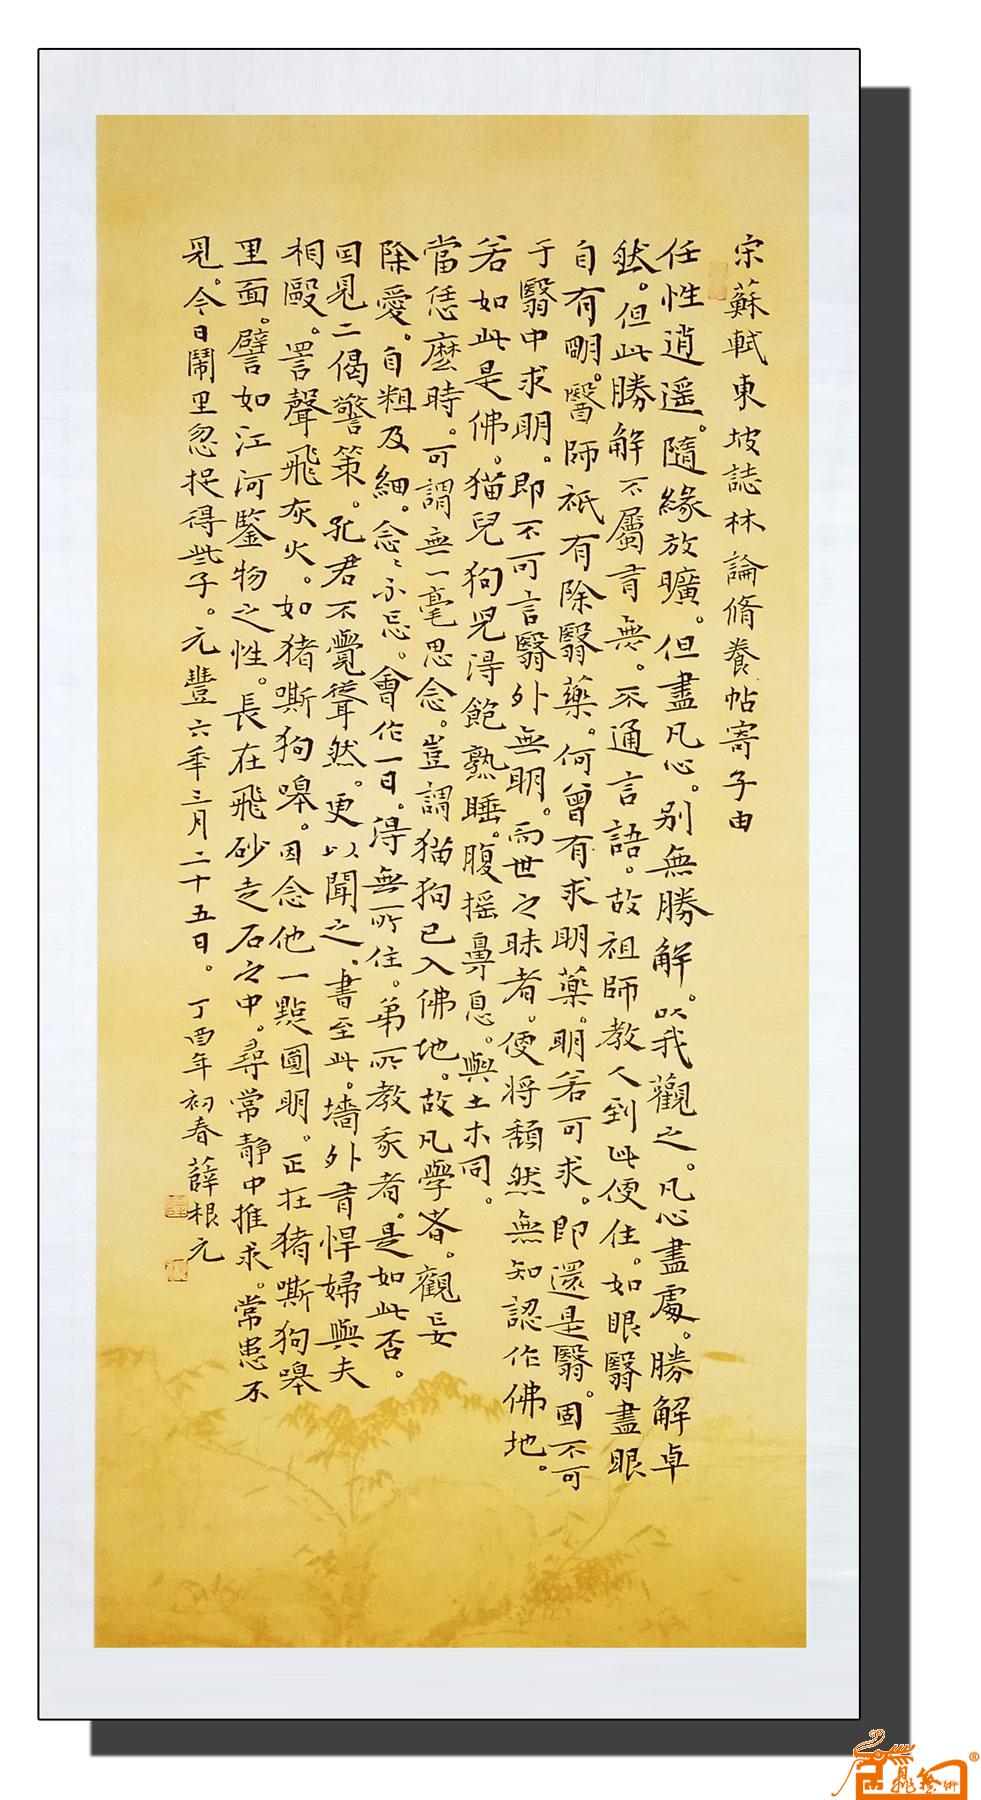 宋蘇軾東坡誌林論脩養帖寄子由
任性逍遥。隨緣放曠。但盡凡心。别無勝解。以我觀之。凡心盡處。勝解卓
然。但此勝解不屬有無。不通言語。故祖師教人到此便住。如眼翳盡眼
自有明。醫師衹有除翳藥。何曾有求明藥。明若可求。即還是翳。固不可
于翳中求明。即不可言翳外無明。而世之昧者。便将頹然無知認作佛地。
若如此是佛。猫兒狗兒得飽熟睡。腹摇鼻息。與土木同。
當恁麽時。可謂無一毫思念。豈謂猫狗已入佛地。故凡學者。觀妄
除愛。自粗及細。念念不忘。會作一日。得無所住。弟所教我者。是如此否。
因見二偈警策。孔君不覺聳然。更以聞之。書至此。墻外有悍婦與夫
相毆。詈聲飛灰火。如猪嘶狗嗥。因念他一點圓明。正在猪嘶狗嗥
里面。譬如江河鑒物之性。長在飛砂走石之中。尋常静中推求。常患不
見。今日鬧里忽捉得些子。元豐六年三月二十五日。丁酉年初春薛根元